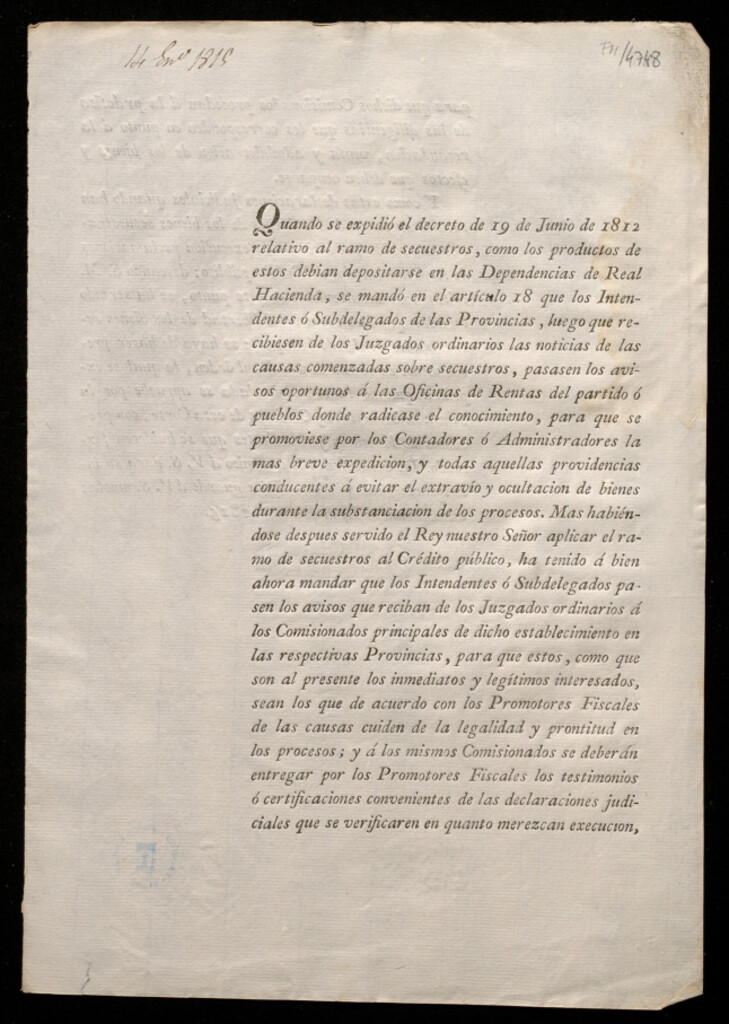 14 Enº 1815
FH/4748
Quando se expidió el decreto de 19 de Junio de 1812
relativo al ramo de secuestros, como los productos de
estos debian depositarse en las Dependencias de Real
Hacienda, se mandó en el artículo 18 que los Inten-
dentes ó Subdelegados de las Provincias, luego que re-
cibiesen de los Juzgados ordinarios las noticias de las
causas comenzadas sobre secuestros, pasasen los avi-
sos oportunos á las Oficinas de Rentas del partido ó
pueblos donde radicase el conocimiento, para que se
promoviese por los Contadores ó Administradores la
mas breve expedicion, y todas aquellas providencias
conducentes á evitar el extravío y ocultacion de bienes
durante la substanciacion de los procesos. Mas habién-
dose despues servido el Rey nuestro Señor aplicar el ra-
mo de secuestros al Crédito público, ha tenido á bien
ahora mandar que los Intendentes ó Subdelegados pa-
sen los avisos que reciban de los Juzgados ordinarios á
los Comisionados principales de dicho establecimiento en
las respectivas Provincias, para que estos, como que
son al presente los inmediatos y legítimos interesados,
sean los que de acuerdo con los Promotores Fiscales
de las causas cuiden de la legalidad y prontitud en
los procesos; y á los mismos Comisionados se deberán
entregar por los Promotores Fiscales los testimonios
ó certificaciones convenientes de las declaraciones judi-
ciales que se verificaren en quanto merezcan execucion,